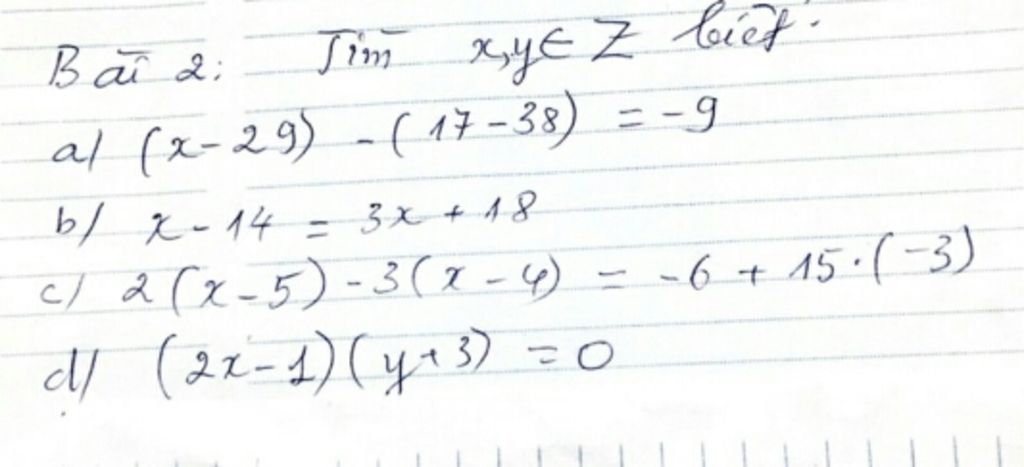 Bài 2: Tìm x,y ∈ Z biết:
a/ (x - 29) - (17 - 38) = -9
b/ x - 14 = 3x + 18
c/ 2(x - 5) - 3(x - 4) = -6 + 15.(-3)
d/ (2x - 1)(y + 3) = 0